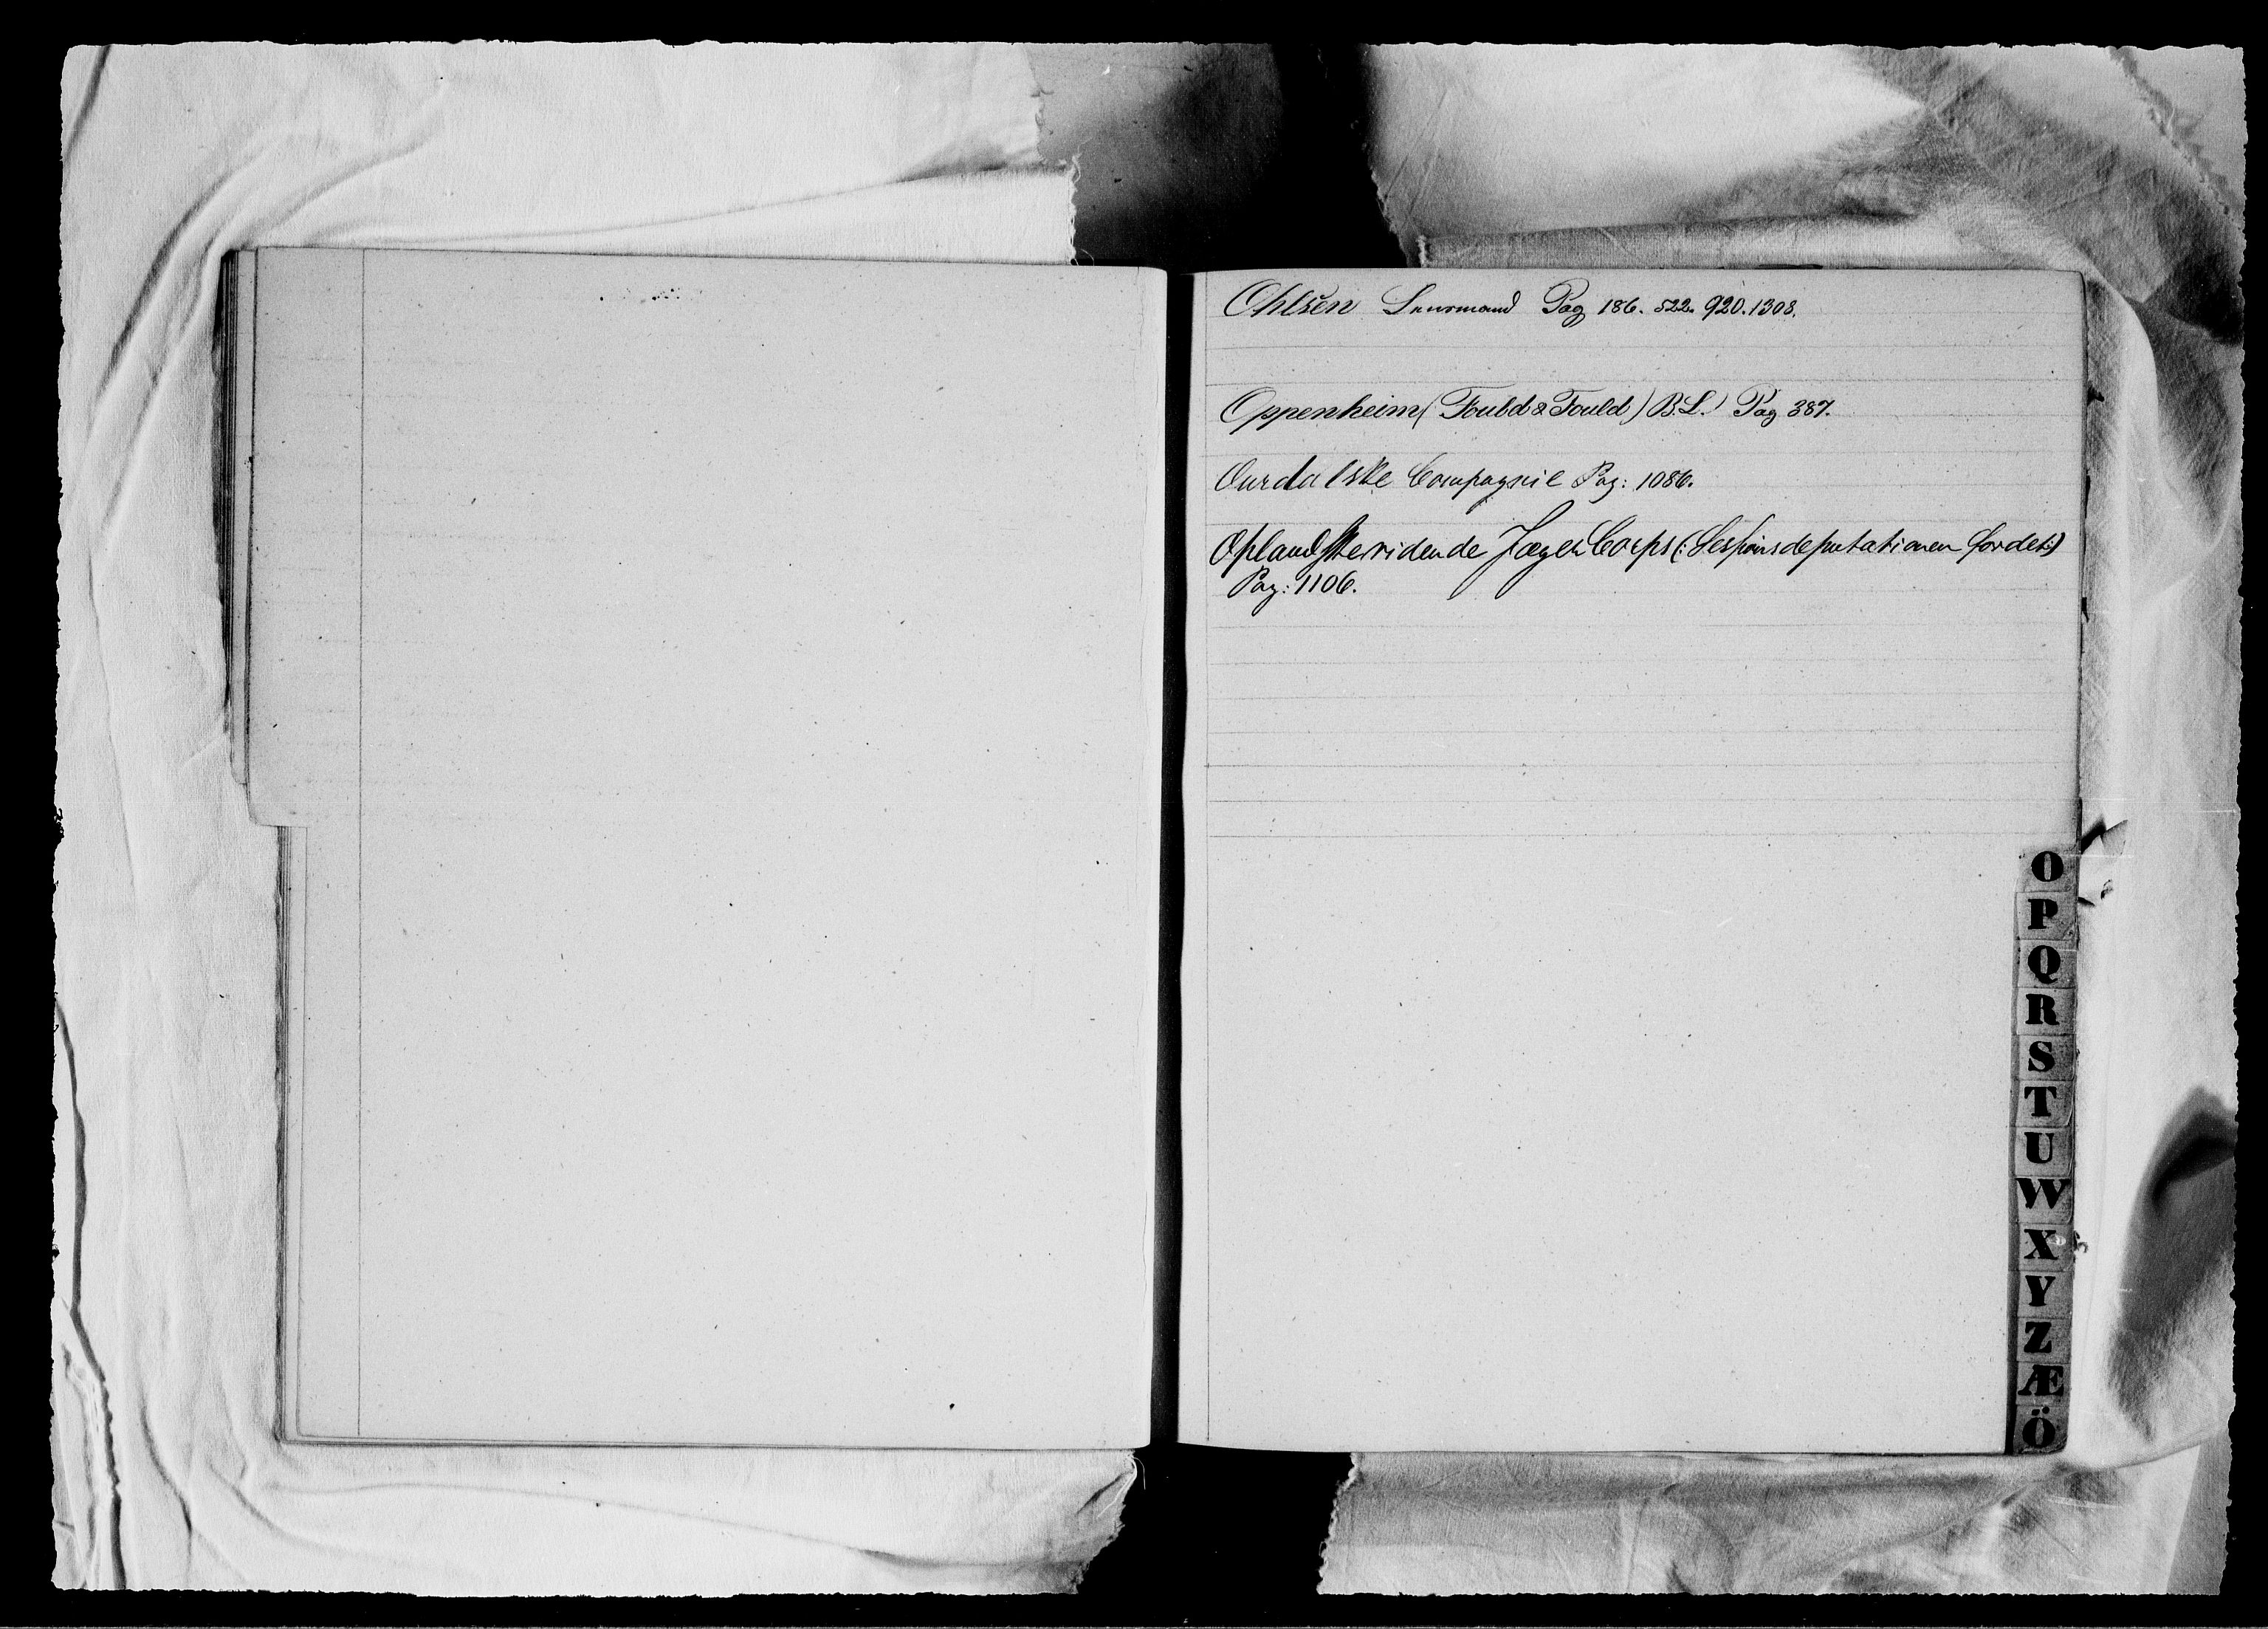 Ohlsen Snurmand Pag 186. 522. 920. 1308.
Oppenheim (Fould & Fould) B.L.) Pag 387.
Ourdalske Compagnie Pag: 1086.
Oplandske ridende Jæger Corps (: Sessionsdeputationen for det:)
Pag: 1106.
O
P
Q
R
S
T
U
W
X
Y
Z
Æ
Ö